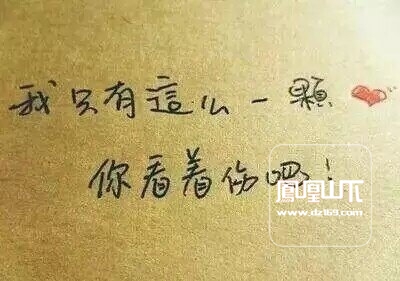 我只有這么一顆
你看着伤吧！
鳳凰山下
www.dz169.com